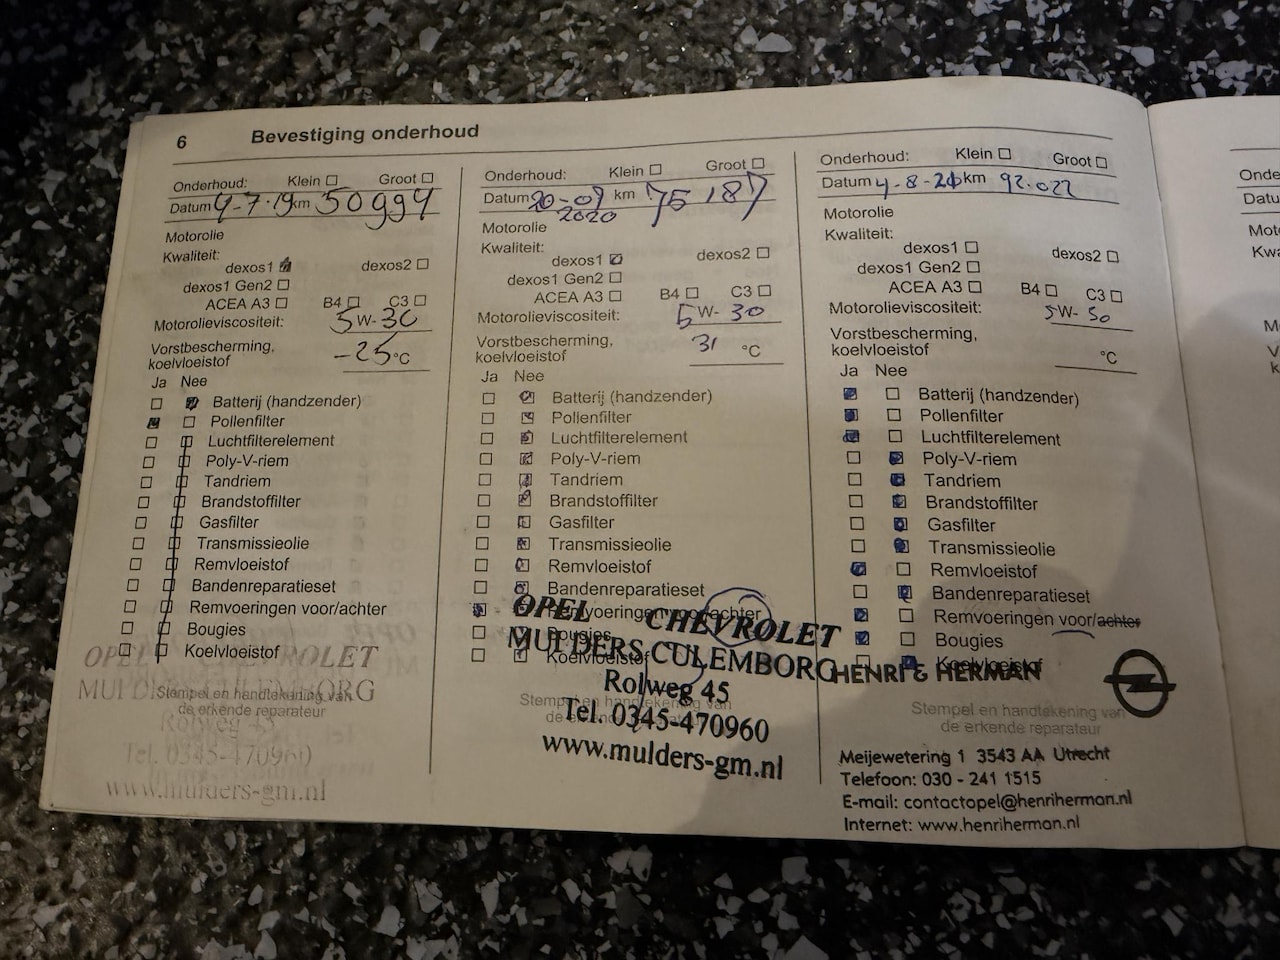 6 Bevestiging onderhoud
Onderhoud: Klein ☐ Groot ☐
Datum 4-7-19 km 50994
Motorolie
Kwaliteit:
dexos1 ☑ dexos2 ☐
dexos1 Gen2 ☐
ACEA A3 ☐ B4 ☐ C3 ☐
Motorolieviscositeit: 5W-30
Vorstbescherming,
koelvloeistof -25 °C
Ja Nee
☐ ☑ Batterij (handzender)
☑ ☐ Pollenfilter
☐ ☐ Luchtfilterelement
☐ ☐ Poly-V-riem
☐ ☐ Tandriem
☐ ☐ Brandstoffilter
☐ ☐ Gasfilter
☐ ☐ Transmissieolie
☐ ☐ Remvloeistof
☐ ☐ Bandenreparatieset
☐ ☐ Remvoeringen voor/achter
☐ ☐ Bougies
☐ ☐ Koelvloeistof
OPEL CHEVROLET
MULDERS CULEMBORG
Stempel en handtekening van
de erkende reparateur
Rolweg 45
Tel. 0345-470960
www.mulders-gm.nl
Onderhoud: Klein ☐ Groot ☐
Datum 20-07 km 75187
2020
Motorolie
Kwaliteit:
dexos1 ☑ dexos2 ☐
dexos1 Gen2 ☐
ACEA A3 ☐ B4 ☐ C3 ☐
Motorolieviscositeit: 5W-30
Vorstbescherming,
koelvloeistof 31 °C
Ja Nee
☐ ☑ Batterij (handzender)
☐ ☑ Pollenfilter
☐ ☑ Luchtfilterelement
☐ ☑ Poly-V-riem
☐ ☑ Tandriem
☐ ☑ Brandstoffilter
☐ ☑ Gasfilter
☐ ☑ Transmissieolie
☐ ☑ Remvloeistof
☐ ☑ Bandenreparatieset
☑ ☐ Remvoeringen voor/achter
☐ ☑ Bougies
☐ ☑ Koelvloeistof
OPEL CHEVROLET
MULDERS CULEMBORG
Rolweg 45
Stempel en handtekening van
de erkende reparateur
Tel. 0345-470960
www.mulders-gm.nl
Onderhoud: Klein ☐ Groot ☐
Datum 4-8-21 km 92.022
Motorolie
Kwaliteit:
dexos1 ☐ dexos2 ☐
dexos1 Gen2 ☐
ACEA A3 ☐ B4 ☐ C3 ☐
Motorolieviscositeit: 5W-30
Vorstbescherming,
koelvloeistof °C
Ja Nee
☑ ☐ Batterij (handzender)
☑ ☐ Pollenfilter
☑ ☐ Luchtfilterelement
☐ ☑ Poly-V-riem
☐ ☑ Tandriem
☐ ☑ Brandstoffilter
☐ ☑ Gasfilter
☐ ☑ Transmissieolie
☑ ☐ Remvloeistof
☐ ☑ Bandenreparatieset
☑ ☐ Remvoeringen voor/achter
☑ ☐ Bougies
☐ ☑ Koelvloeistof
HENRI & HERMAN
Stempel en handtekening van
de erkende reparateur
Meijewetering 1 3543 AA Utrecht
Telefoon: 030 - 241 1515
E-mail: contactopel@henriherman.nl
Internet: www.henriherman.nl